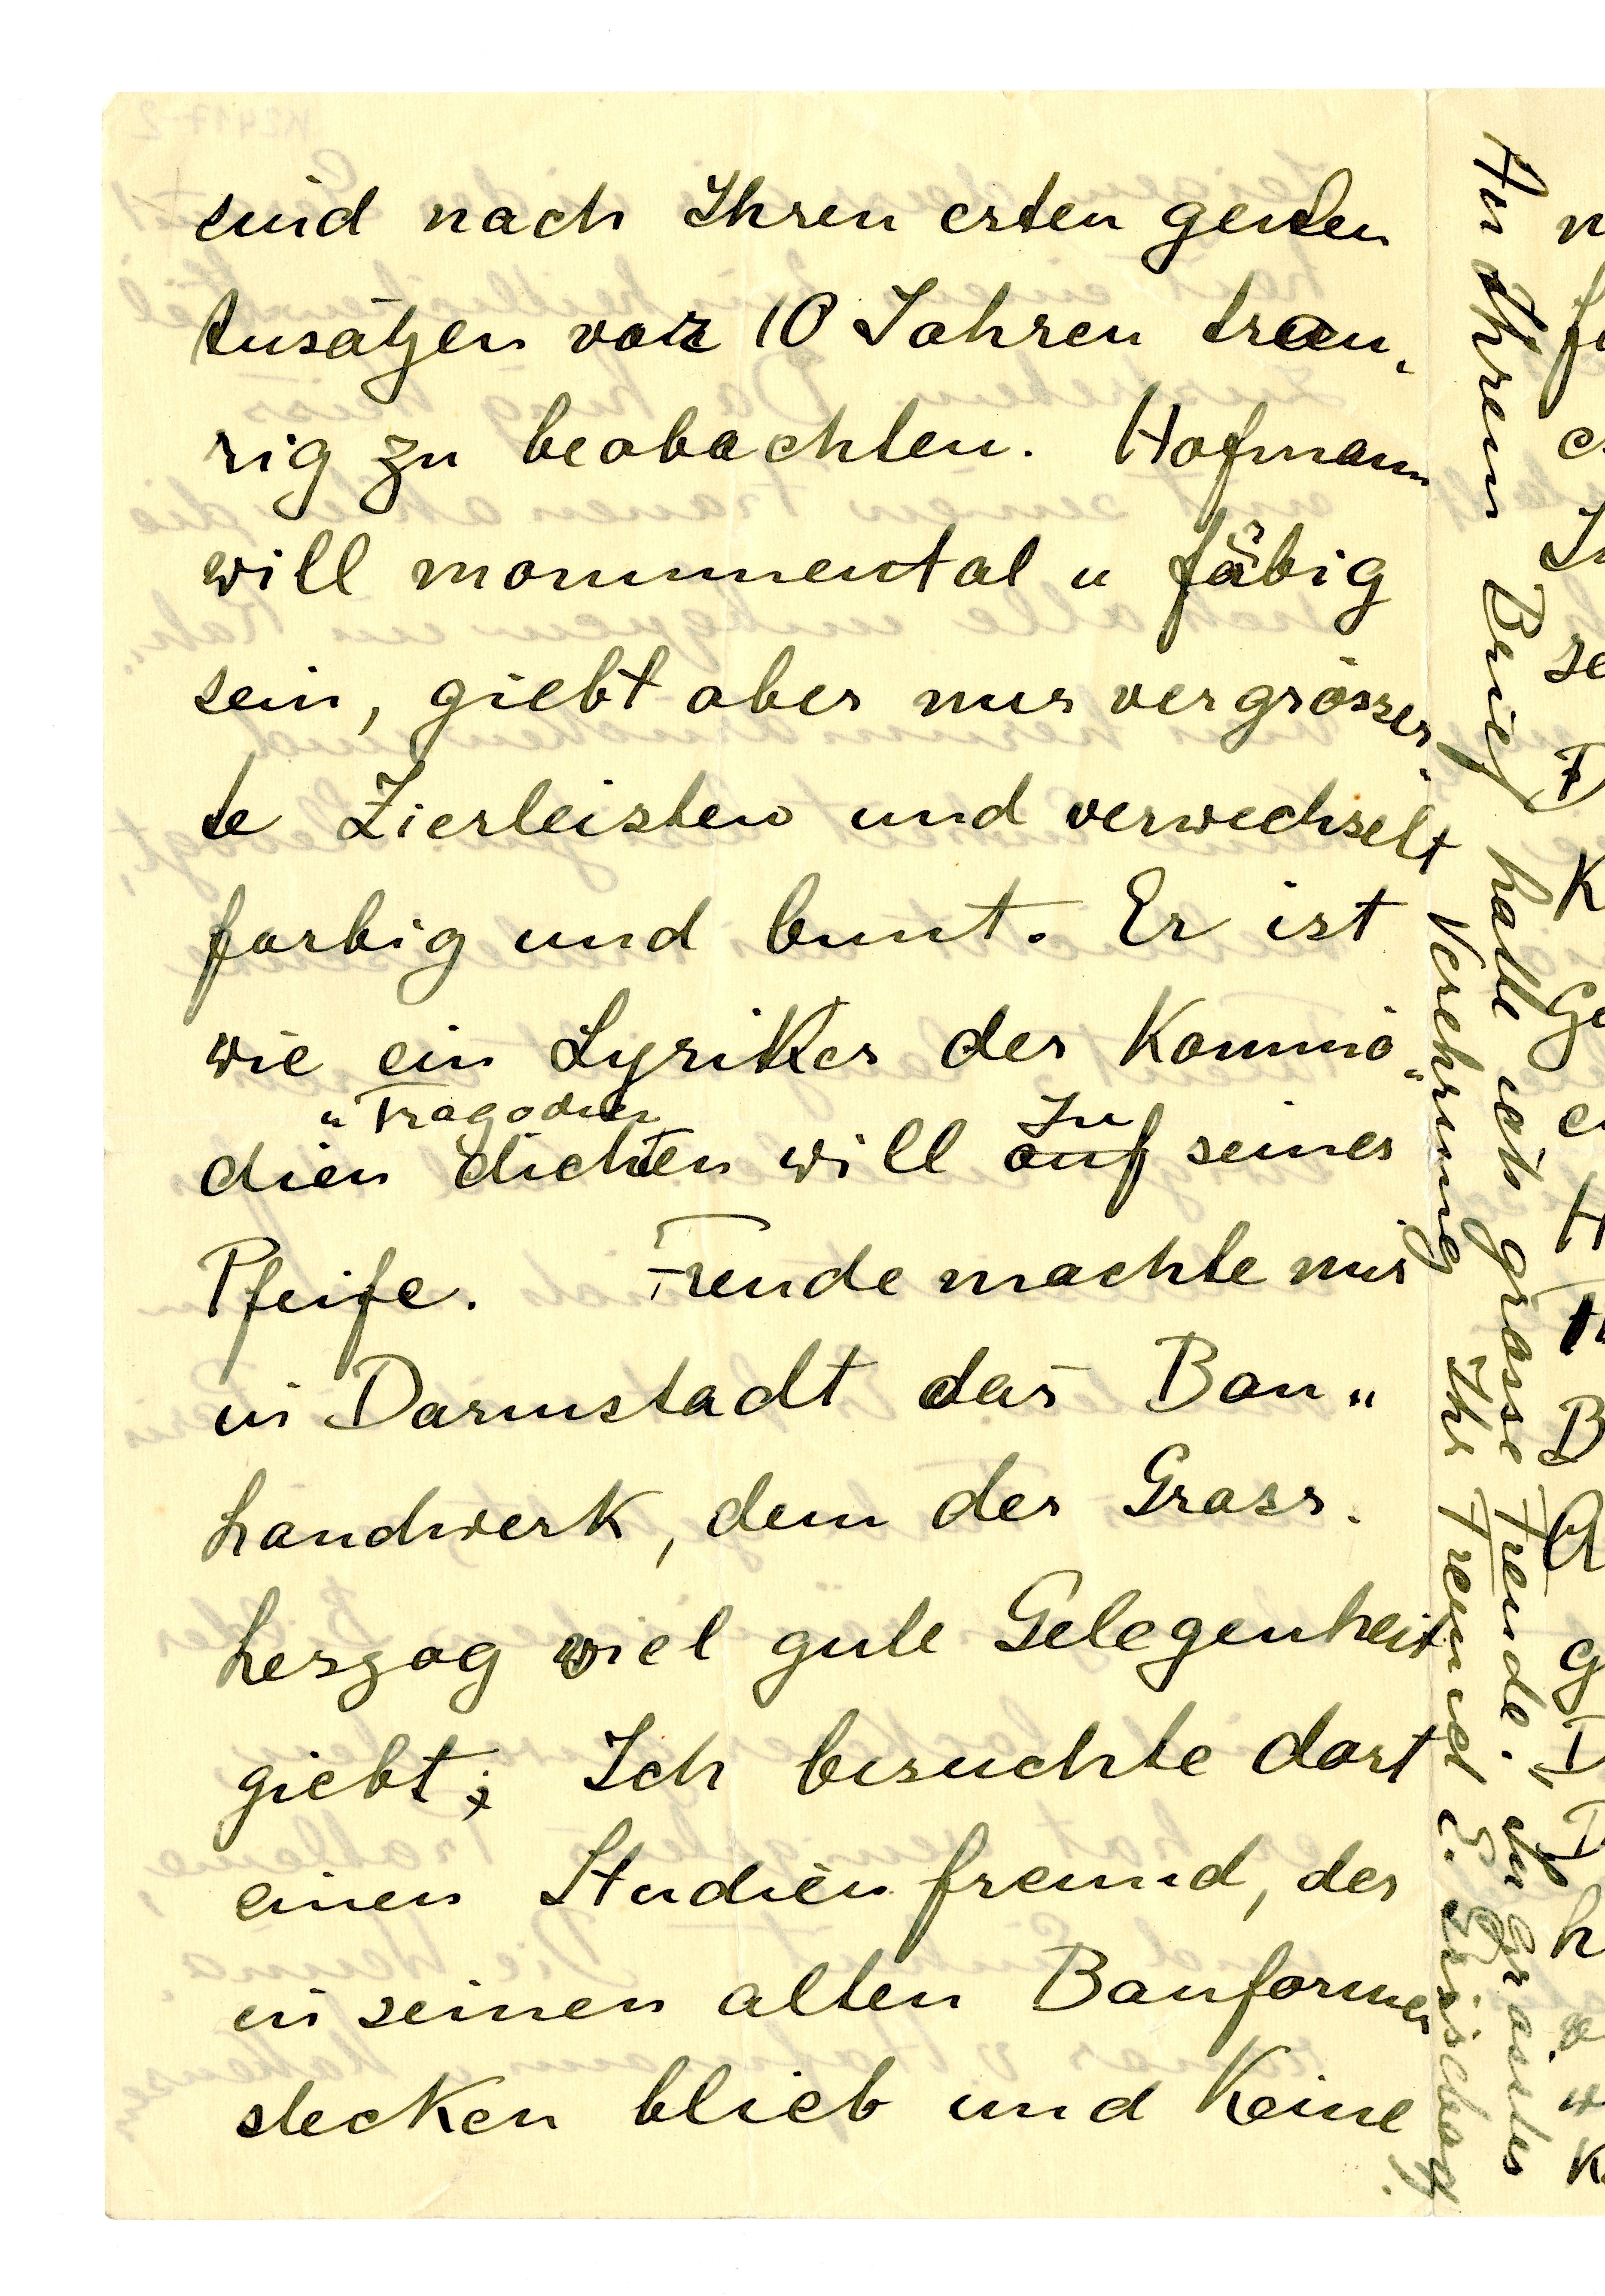 sind nach Ihren ersten guten
Ansätzen vor 10 Jahren trau-
rig zu beobachten. Hofmann
will monumental u färbig
sein, giebt aber nur vergrösser-
te Zierleisten und verwechselt
farbig und bunt. Er ist
wie ein Lyriker der Kommö-
u Tragödien
dien dichten will auf seiner
zu
Pfeife. Freude machte mir
in Darmstadt das Bau-
handwerk, dem der Gross-
herzog viel gute Gelegenheit
giebt; Ich besuchte dort
einen Studienfreund, der
in seinen alten Bauformen
stecken blieb und keine
An Ihrem Brief hatte ich grosse Freude.
Verehrung Ihr Freund